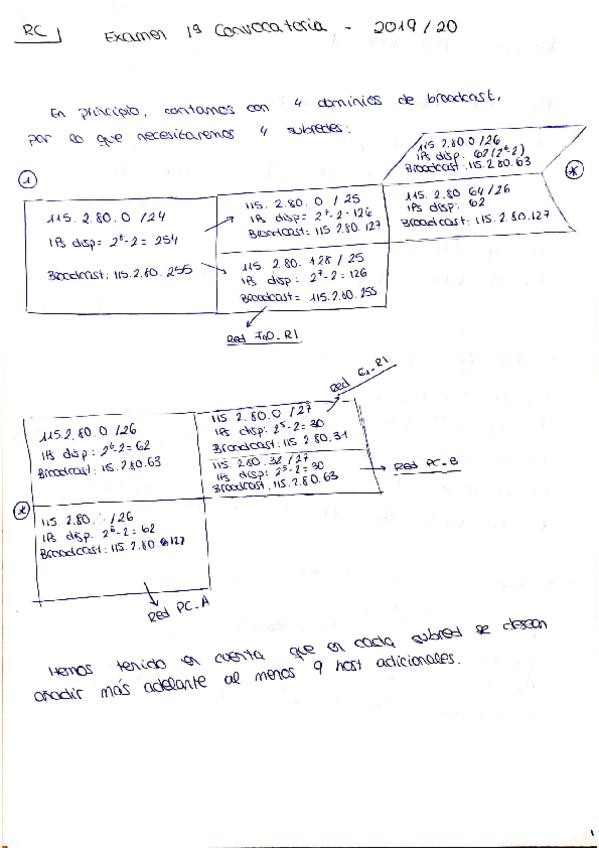 RC
Examen 1ª Convocatoria - 2019/20
En principio, contamos con 4 dominios de broadcast,
por lo que necesitaremos 4 subredes:
115.2.80.0/26
IPs disp: 62 (2^6-2)
Broadcast: 115.2.80.63
1
*
115.2.80.0/24
IPs disp= 2^8-2=254
Broadcast: 115.2.80.255
115.2.80.0/25
IPs disp= 2^7-2=126
Broadcast: 115.2.80.127
115.2.80 64/26
IPs disp: 62
Broadcast: 115.2.80.127
115.2.80.128/25
IPs disp: 2^7-2=126
Broadcast= 115.2.80.255
Red R1
Red R1
115.2.80.0/26
IPs disp: 2^6-2=62
Broadcast: 115.2.80.63
115.2.80.0/27
IPs disp: 2^5-2=30
Broadcast: 115.2.80.31
115.2.80.32/27
IPs disp: 2^5-2=30
Broadcast: 115.2.80.63
Red PC_B
*
115.2.80. /26
IPs disp. 2^6-2=62
Broadcast: 115.2.80.127
Red PC_A
Hemos tenido en cuenta que en cada subred se desean
añadir más adelante al menos 9 host adicionales.
1